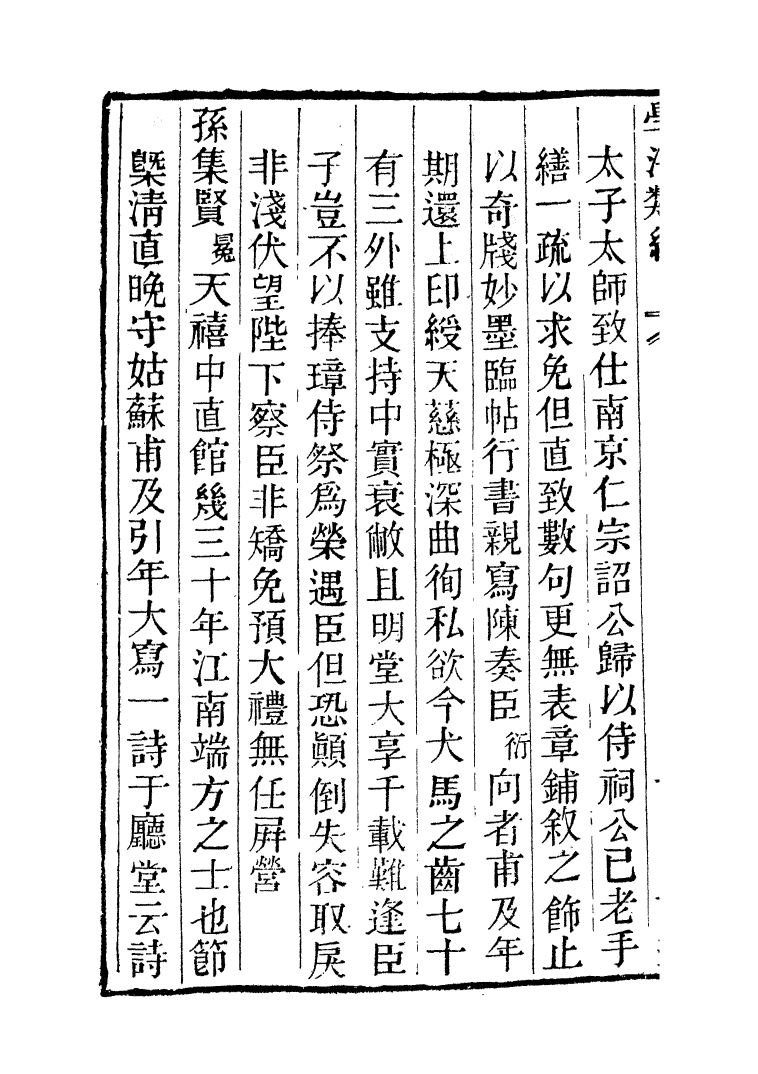 太子太師致仕南京仁宗詔公歸以侍祠公已老手
繕一疏以求免但直致數句更無表章鋪敘之飾止
以奇牋妙墨臨帖行書親寫陳奏臣衍向者甫及年
期還上印綬天慈極深曲徇私欲今犬馬之齒七十
有三外雖支持中實衰敝且明堂大享千載難逢臣
子豈不以捧璋侍祭爲榮遇臣但恐顛倒失容取戾
非淺伏望陛下察臣非矯免預大禮無任屛營
孫集賢冕天禧中直館幾三十年江南端方之士也節
槩淸直晚守姑蘇甫及引年大寫一詩于廳堂云詩